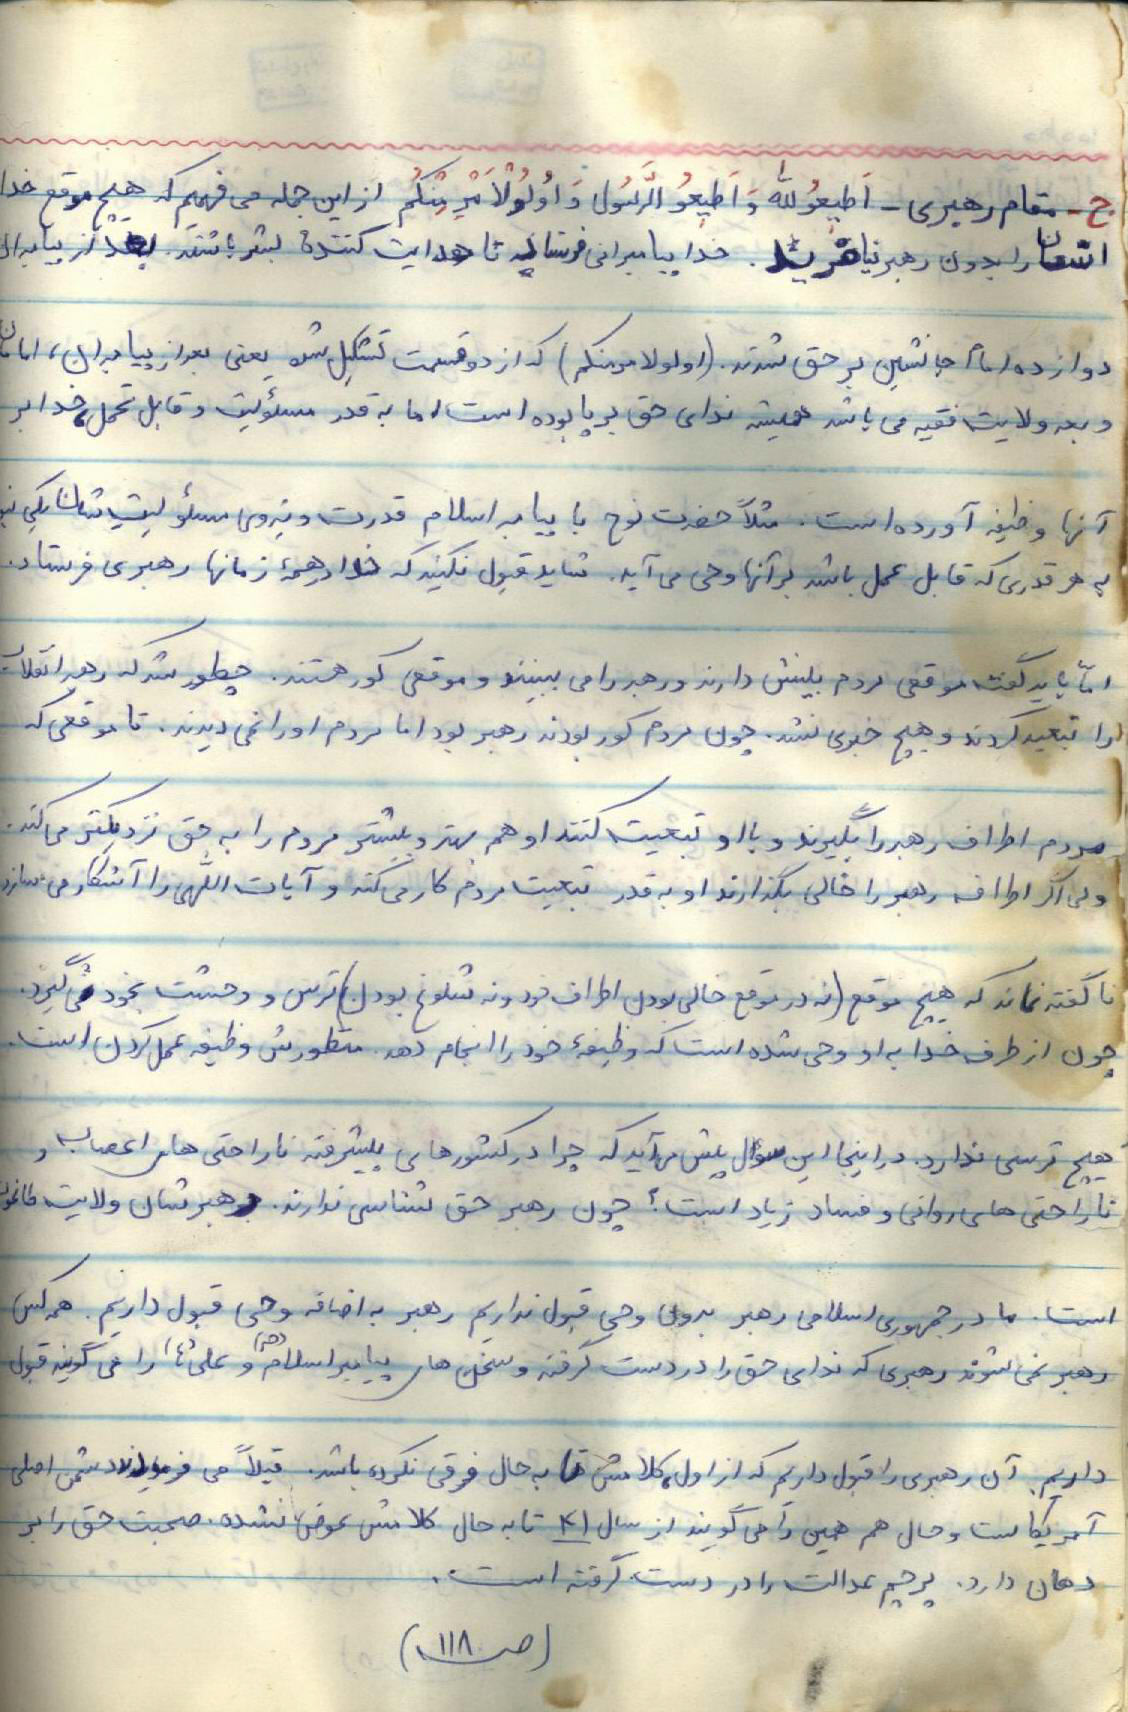 ج - مقام رهبری - اَطیعُو للّٰه وَ اَطیعُو الرَّسُول وَ اُولُوْلاَمْرِ مِنْکُم از این جمله می فهمیم که هیچ موقع خدا
انسان را بدون رهبر نیافرید. خدا پیامبرانی فرستاد تا هدایت کنندهٔ بشر باشند. بعد از پیامبران
دوازده امام جانشین بر حق شدند. (اولولامرمنکم) که از دو قسمت تشکیل شده یعنی بعد از پیامبران، امامان
و بعد ولایت فقیه می باشد همیشه ندای حق بر پا بوده است، اما به قدر مسئولیت و قابل تحمل، خدا بر
آنها وظیفه آورده است. مثلاً حضرت نوح با پیامبر اسلام قدرت و نیروی مسئولیت شان یکی
به هر قدری که قابل عمل باشد بر آنها وحی می آید. شاید قبول نکنید که خدا در همهٔ زمانها رهبری فرستاد.
امّا باید گفت موقعی مردم بینش دارند و رهبر را می بینند و موقعی کور هستند. چطور شد که رهبر انقلاب
را تبعید کردند و هیچ خبری نشد. چون مردم کور بودند رهبر بود اما مردم او را نمی دیدند. تا موقعی که
مردم اطراف رهبر را بگیرند و با او تبعیت کنند او هم بهتر و بیشتر مردم را به حق نزدیکتر می کند.
ولی اگر اطراف رهبر را خالی بگذارند او به قدر تبعیت مردم کار می کند و آیات اللّهی را آشکار می سازد
نا گفته نماند که هیچ موقع (نه در موقع خالی بودن اطراف خود و نه شلوغ بودن) ترس و وحشت بخود نمی گیرد.
چون از طرف خدا به او وحی شده است که وظیفهٔ خود را انجام دهد. منظورش وظیفه عمل کردن است.
هیچ ترسی ندارد. در اینجا این سؤال پیش می آید که چرا در کشورهای پیشرفته ناراحتی های اعصاب و
ناراحتی های روانی و فساد زیاد است؟ چون رهبر حق شناسی ندارند. رهبرشان ولایت طاغوت
است. ما در جمهوری اسلامی رهبر بدون وحی قبول نداریم رهبر به اضافه وحی قبول داریم. همه کس
رهبر نمی شوند رهبری که ندای حق را در دست گرفته و سخن های پیامبر اسلام (ص) و علی (ع) را می گویند قبول
داریم. آن رهبری را قبول داریم که از اول، کلامش تا به حال فرقی نکرده باشد. قبلاً می فرمودند دشمن اصلی
آمریکاست و حال هم همین را می گویند از سال ۴۱ تا به حال کلامش عوض نشده. صحبت حق را بر
دهان دارد. پرچم عدالت را در دست گرفته است.
(ص ۱۱۸)